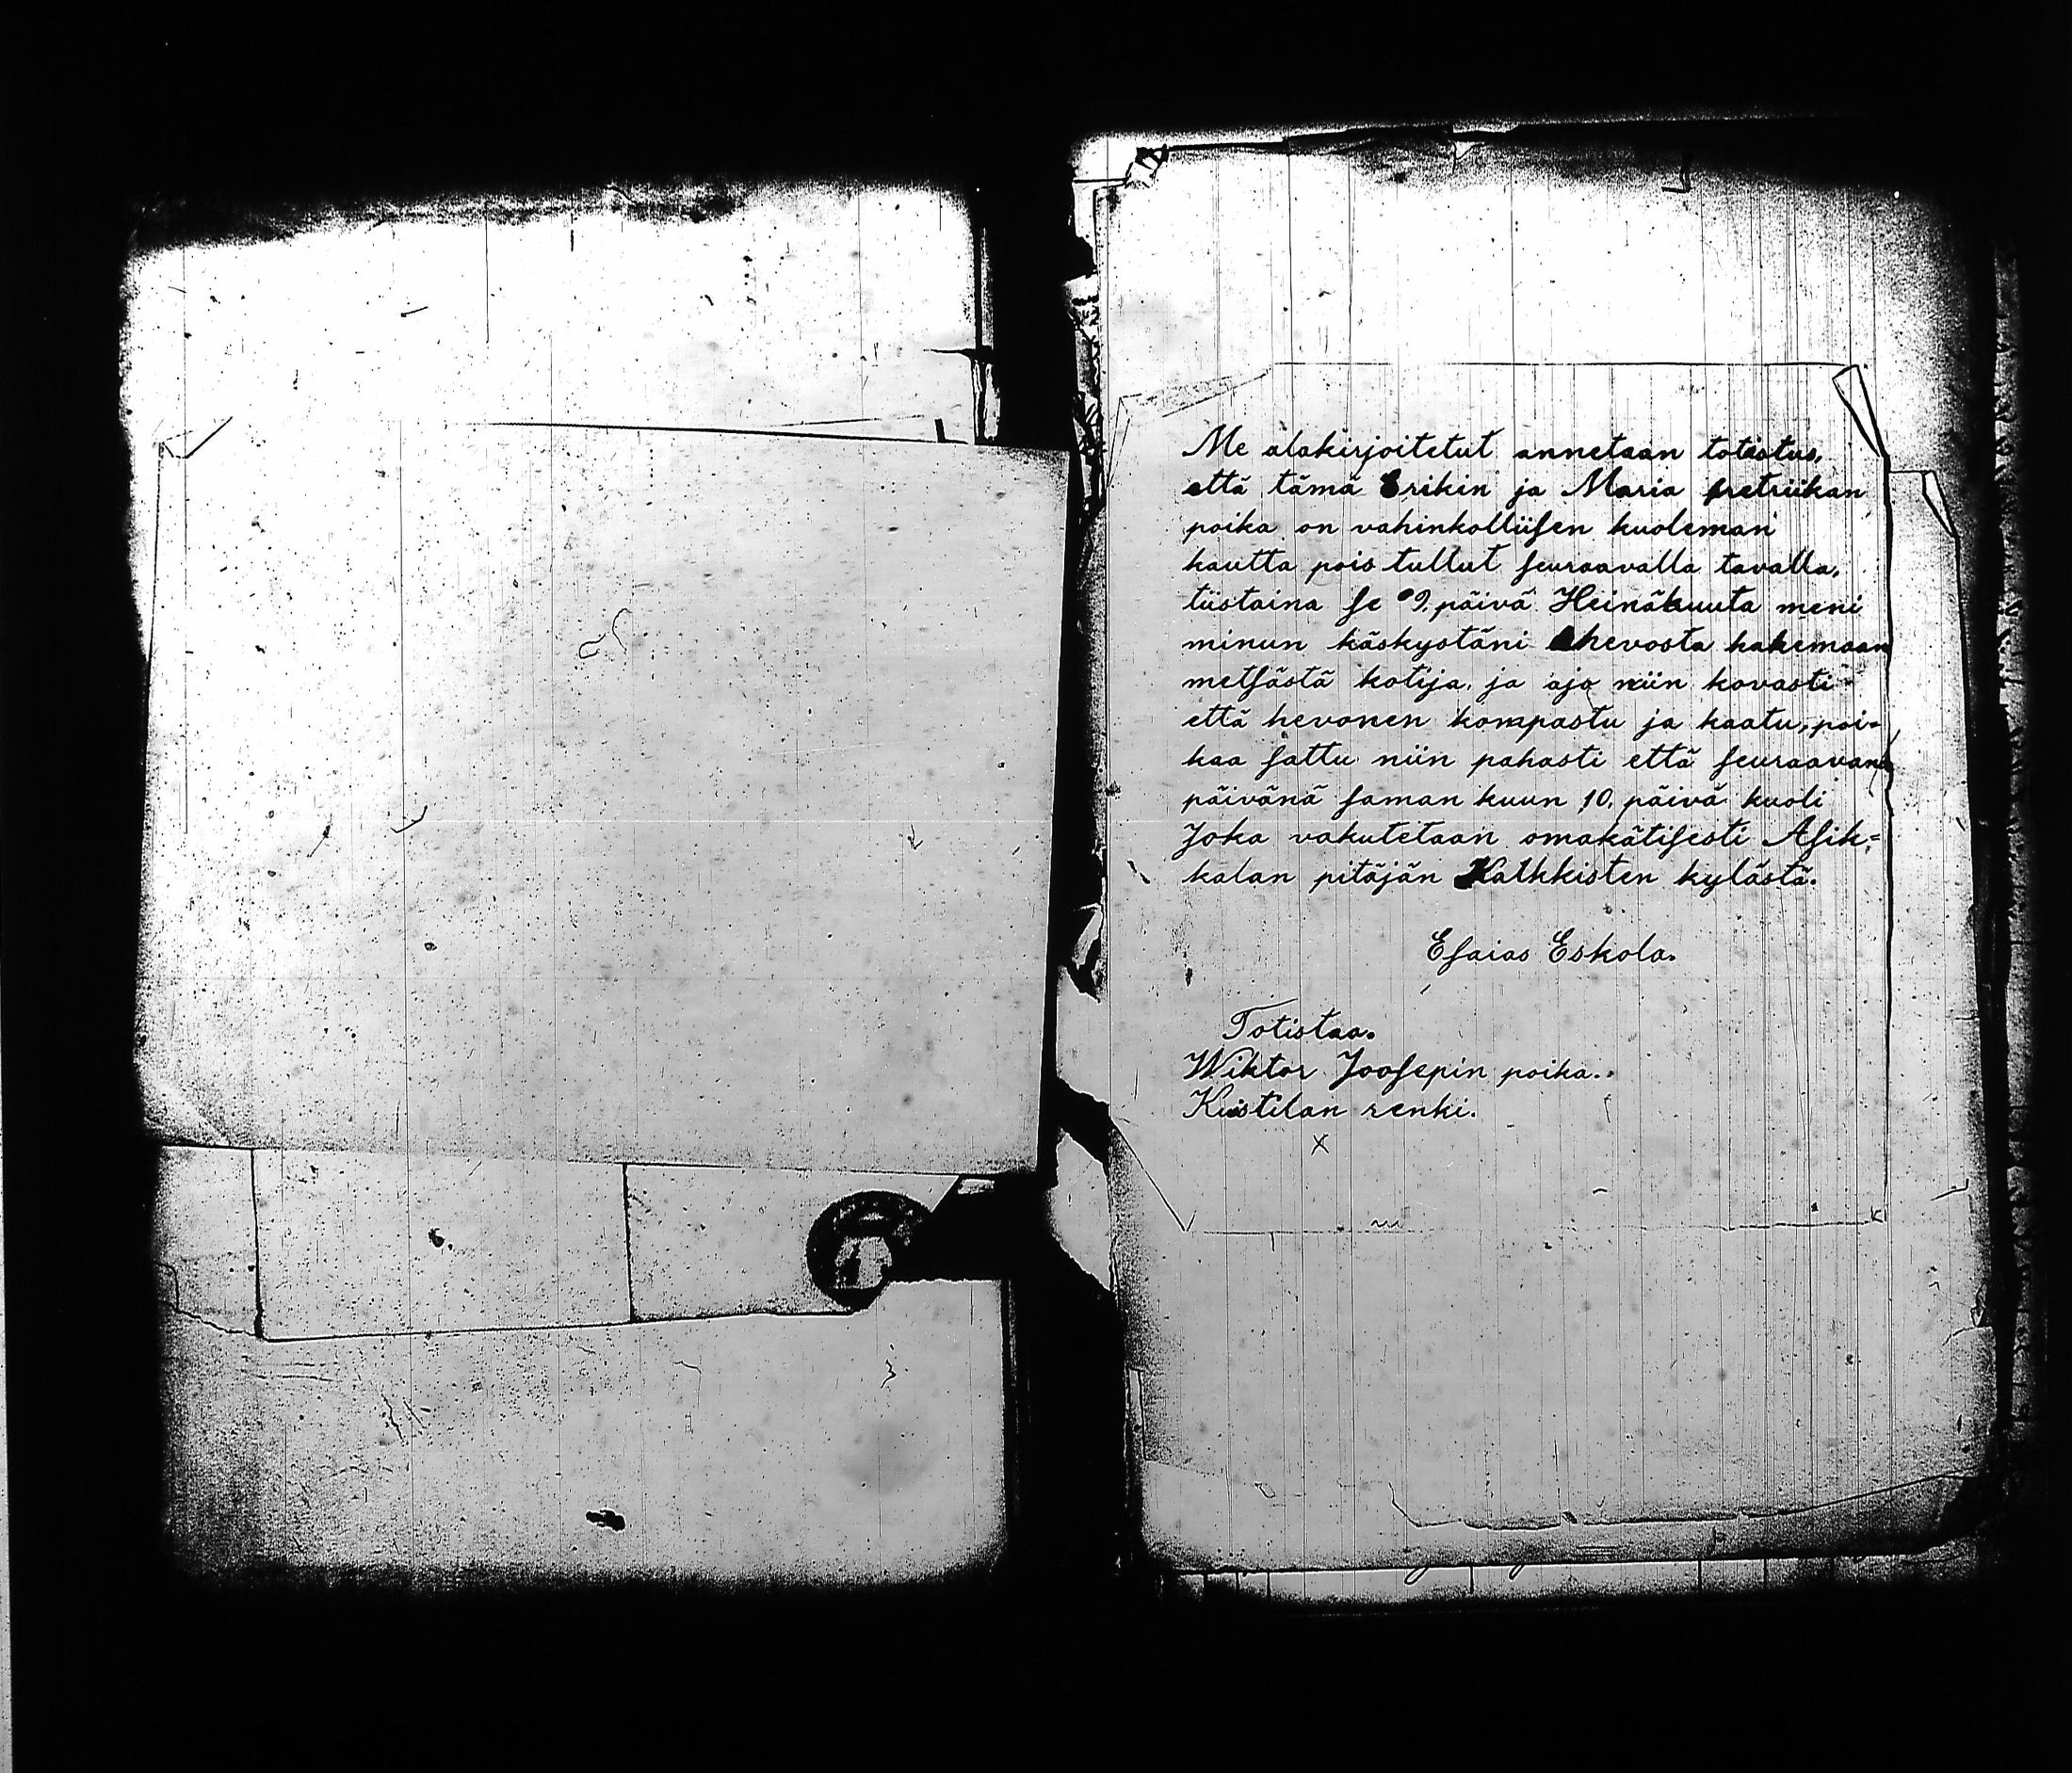 Me alakirjoitetut annetaan totistus,
että tämä Erikin ja Maria fretriikan
poika on vahinkolliisen kuoleman
kautta pois tullut seuraavalla tavalla,
tiistaina se 9. päivä Heinäkuuta meni
minun käskystäni hevosta hakemaan
metsästä kotija, ja ajo niin kovasti
että hevonen kompastu ja kaatu, poi=
kaa sattu niin pahasti että seuraavana
päivänä saman kuun 10. päivä kuoli
Joka vakutetaan omakätisesti Asik=
kalan pitäjän Kalkkisten kylästä.
Esaias Eskola.
Totistaa.
Wiktor Joosepin poika.
Kustilan renki.
X